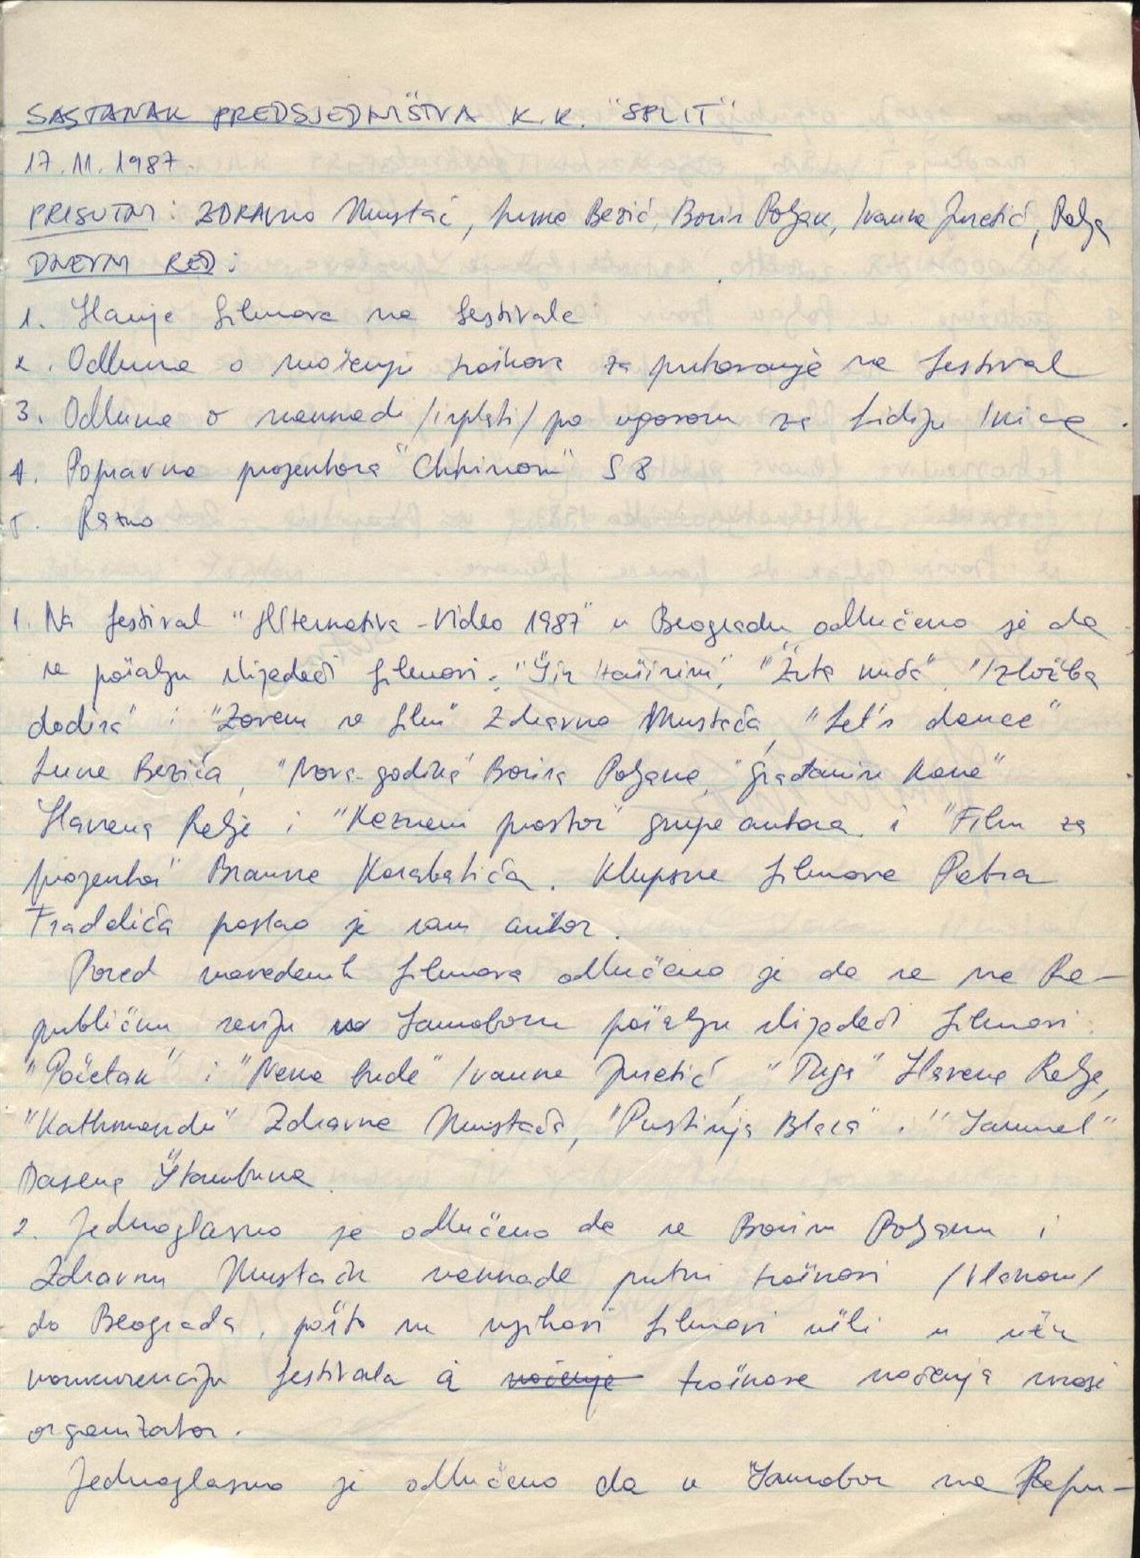 SASTANAK PREDSJEDNIŠTVA K.K. "SPLIT"
17.11.1987.
PRISUTNI: ZDRAVKO Mustać, Lune Bezić, Boris Poljak, Ivanka Juretić, Relja
DNEVNI RED:
1. Slanje filmova na festivale
2. Odluka o snošenju troškova za putovanje na festival
3. Odluka o naknadi /isplati/ po ugovoru za Lidiju
4. Popravka projektora "Chinon" S 8
5. Razno
1. Na festival "Alternative-Video 1987" u Beogradu odlučeno je da
se pošalju slijedeći filmovi: "Šir Haširim", "Žuta kuća", "Izložba
dodira" i "Zovem se film" Zdravka Mustaća, "Let's dance"
Lune Bezića, "Nova godina" Borisa Poljaka, "Građanin Kane"
Slavena Relje i "Kazneni prostor" grupe autora i "Film za
projektor" Branka Karabatića. Klupske filmove Petra
Fradelića poslao je sam autor.
Pored navedenih filmova odlučeno je da se na Re-
publičku reviju u Samoboru pošalju slijedeći filmovi:
"Početak" i "Neka bude" Ivanke Juretić, "Tuga" Slavena Relje,
"Kathmandu" Zdravka Mustaća, "Pustinja Blaca" i "Samuel"
Štambuka
2. Jednoglasno je odlučeno da se Borisu Poljaku i
Zdravku Mustaću naknade putni troškovi /vlakom/
do Beograda, pošto su njihovi filmovi ušli u užu
konkurenciju festivala a noćenje troškove noćenja snosi
organizator.
Jednoglasno je odlučeno da u Samobor na Repu-